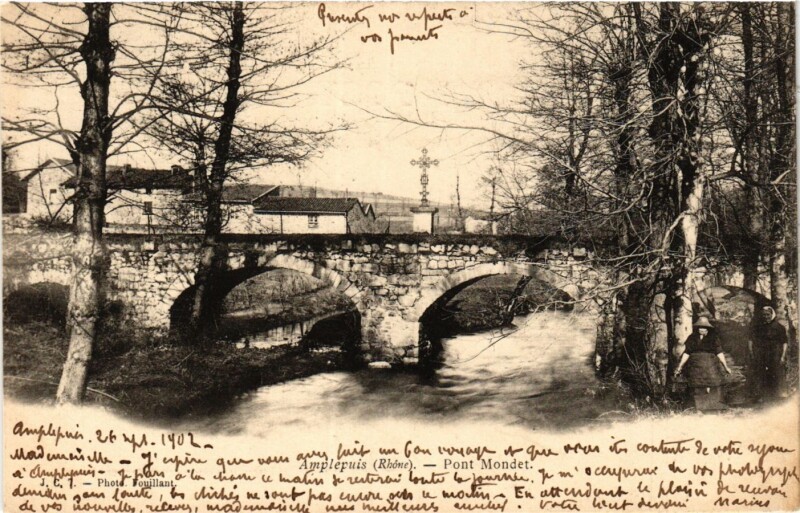 Presentez nos respects à
vos parents
Amplepuis. 26 sept. 1902 -
Mademoiselle - J'espère que vous avez fait un bon voyage et que vous êtes contente de votre séjour
Amplepuis (Rhône). — Pont Mondet.
à Amplepuis - Je pars à la chasse ce matin je resterai toute la journée. Je m'occuperai de vos photographies
J. C. T. - Photo. Fouillant.
demain sans doute, les clichés ne sont pas encore secs ce matin - En attendant le plaisir de recevoir
de vos nouvelles, recevez, mademoiselle mes meilleurs amitiés. Votre tout dévoué Marius